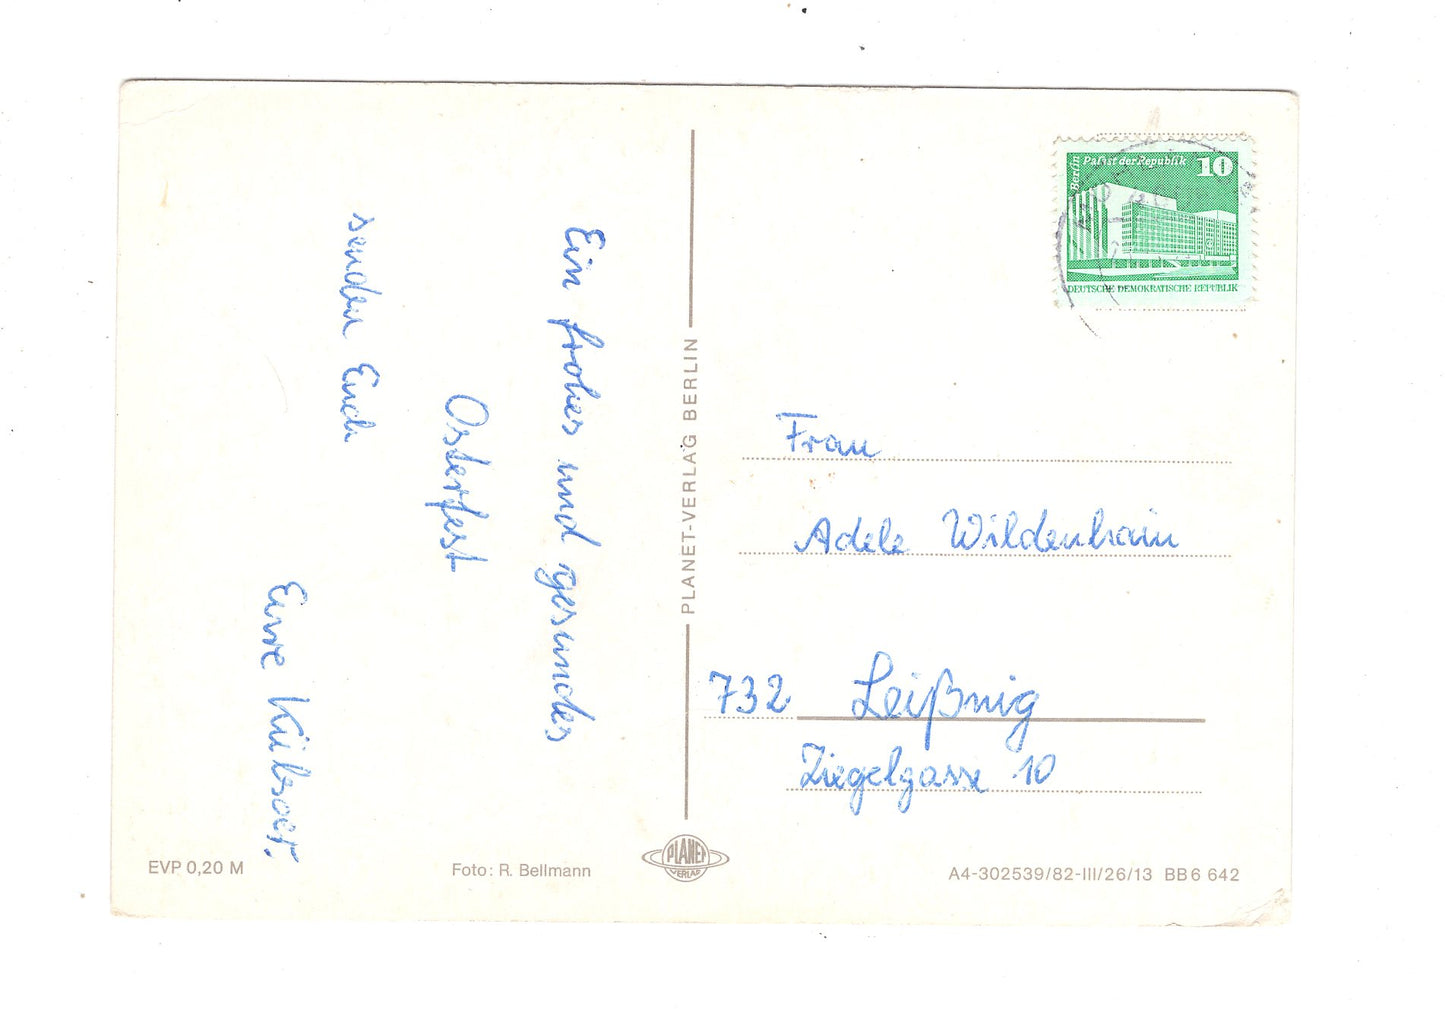 Ein frohes und gesundes
Osterfest
senden Euch
Eure
PLANET-VERLAG BERLIN
Berlin
Palast der Republik 10
DEUTSCHE DEMOKRATISCHE REPUBLIK
Frau
Adele Wildenhain
732 Leißnig
Ziegelgasse 10
EVP 0,20 M
Foto: R. Bellmann
PLANET
VERLAG
A4-302539/82-III/26/13 BB6 642